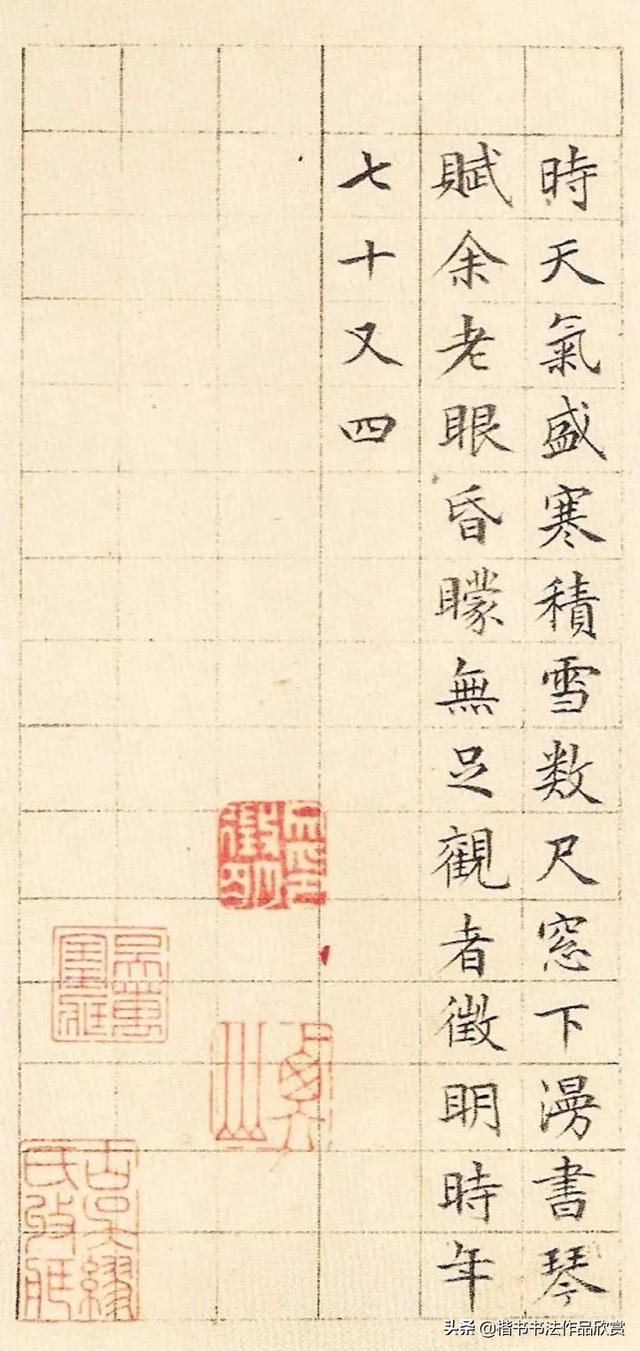 時天氣盛寒積雪数尺窓下漫書琴
賦余老眼昏矇無足觀者徵明時年
七十又四
徵明
頭条 @楷书书法作品欣赏